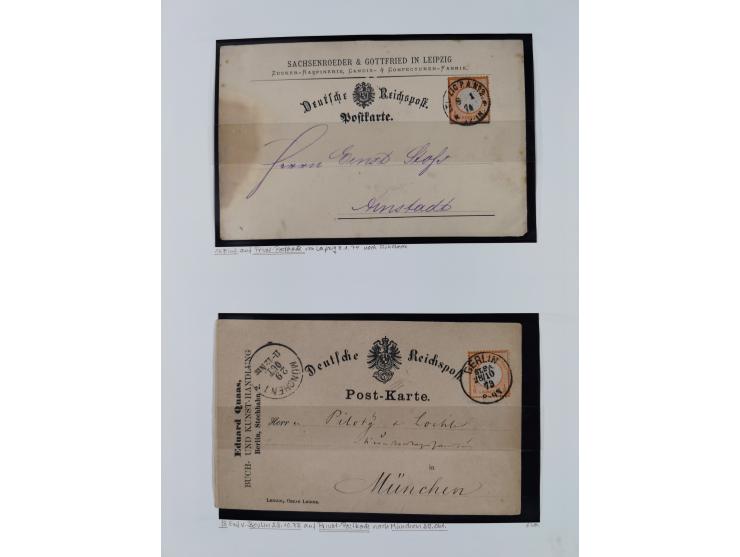 SACHSENROEDER & GOTTFRIED IN LEIPZIG
ZUCKER-RAFFINERIE, CANDIS- & CONFECTUREN-FABRIK.
Deutsche Reichspost.
Postkarte.
Herrn Ernst Stoss
Arnstadt
auf Privat-Postkarte von Leipzig 8.1.74 nach
Eduard Quaas,
BUCH- UND KUNST-HANDLUNG
Berlin, Stechbahn 2.
MÜNCHEN I
29
OCT
11-12 VM
Deutsche Reichspost
BERLIN
28/10
73
Post-Karte.
Herrn Piloty & Loehle
in
München
Berlin 28.10.73 auf Privat-Postkarte nach München